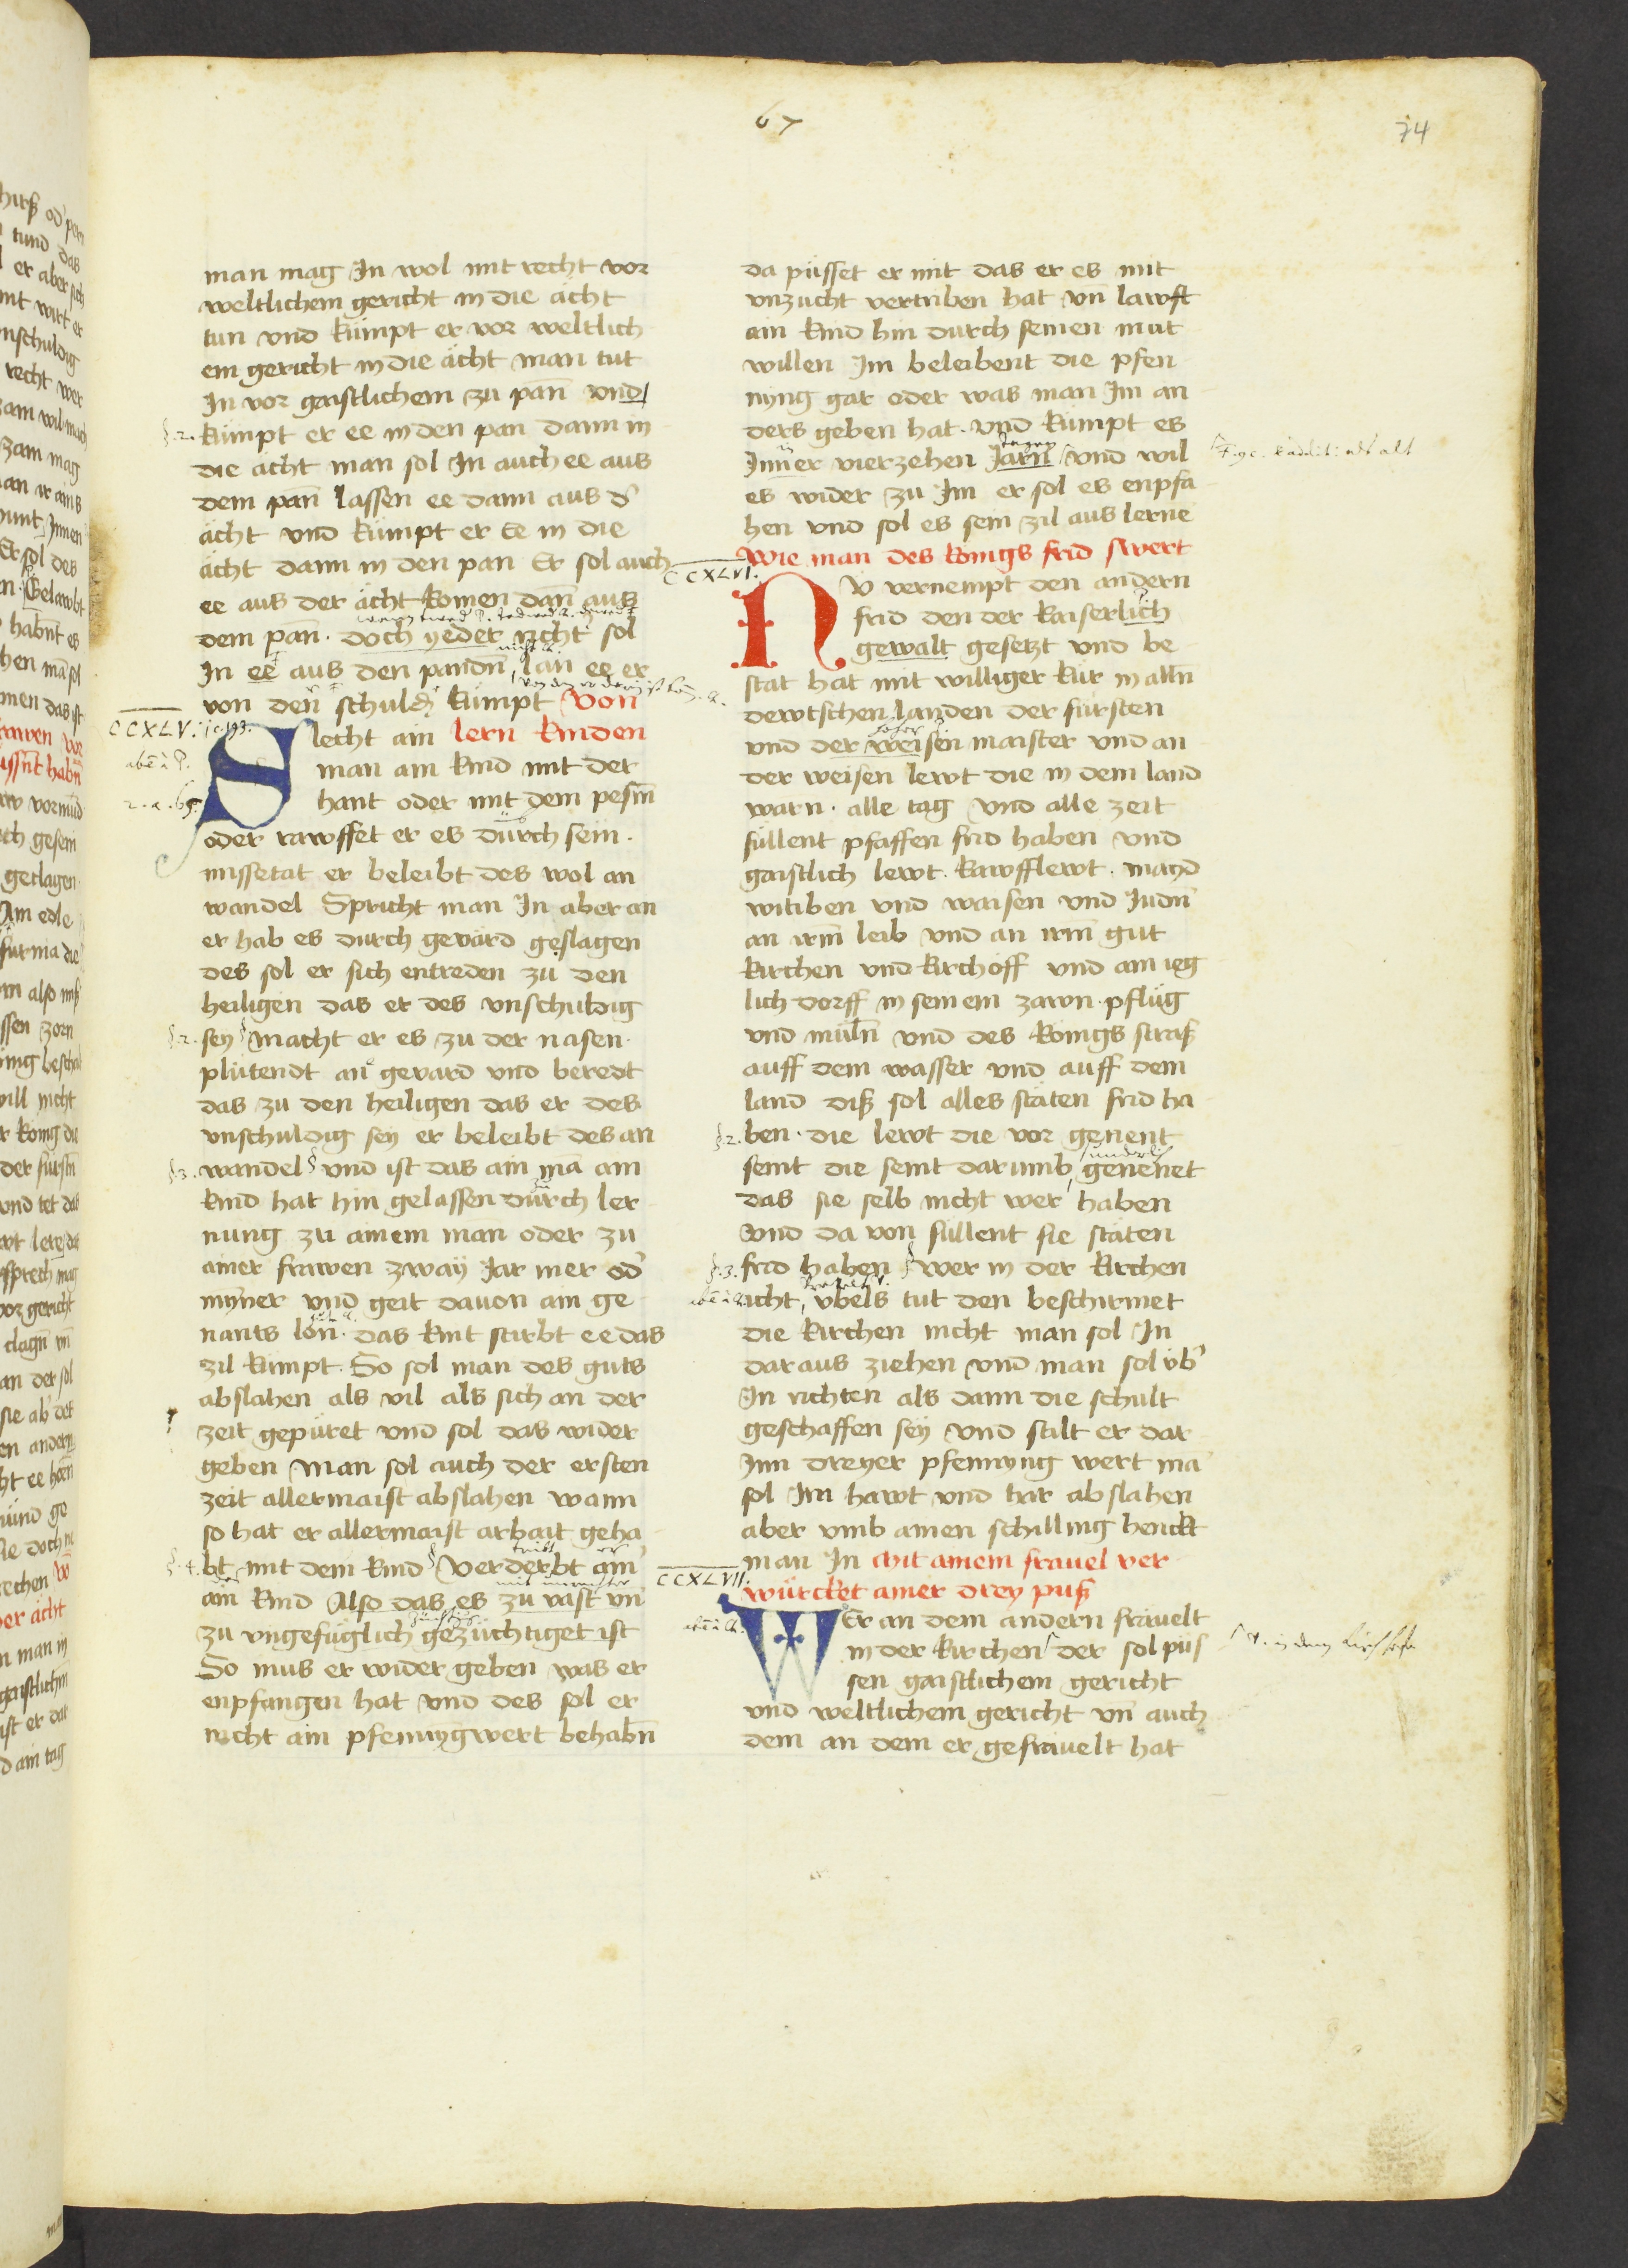 67
74
man mag In wol mit recht vor
weltlichem gericht in die ächt
tun vnd kümpt er vor weltlich
em gericht in die ächt man tut
In vor gaistlichem zu pañ vnd
§.2. kümpt er ee in den pan dann in
die ächt man sol In auch ee aus
dem pañ lassen ee dann aus d'
ächt vnd kümpt er ee in die
ächt dann in den pan Er sol auch
ee aus der ächt komen dañ aus
dem pañ. doch yeder richt sol
In ee aus den pandñ lan ee er
von den schuldñ kümpt Von
CCXLV.
lern kinden
Slecht ain
man ain kind mit der
hant oder mit dem pesm̃
oder rawffet er es durch sein
missetat er beleibt des wol an
wandel Spricht man In aber an
er hab es durch gevärd geslagen
des sol er sich entreden zu den
heiligen das er des vnschuldig
§.2. sey macht er es zu der nasen
plütendt an gevard vnd beredt
das zu den heiligen das er des
vnschuldig sey er beleibt des an
§.3. wandel vnd ist das ain mã ain
kind hat hin gelassen durch ler
nung zu ainem man oder zu
ainer frawen zway Jar mer od'
myner vnd geit davon ain ge
nants lon. das kint stirbt ee das
zil kümpt. So sol man des guts
abslahen als vil als sich an der
zeit gepüret vnd sol das wider
geben Man sol auch der ersten
zeit allermaist abslahen wann
so hat er allermaist arbait geha
§.4. bt mit dem kind Verderbt ain
ain kind Also das es zu vast vñ
zu vngefüglich gezüchtiget ist
So mus er wider geben was er
enpfangen hat vnd des sol er
nicht ain pfennygwert behabñ
da püsset er mit das er es mit
vnzucht vertriben hat vñ lawft
ain kind hin durch seinen mut
willen Im beleibent die pfen
nyng gar oder was man Im an
ders geben hat. vnd kümpt es
Inner vierzehen Jarn vnd wil
es wider zu Im er sol es enpfa
hen vnd sol es sein zil aus lerne
Wie man des konigs frid swert
CCXLVI.
NV vernempt den andern
frid den der kaiserlich
gewalt gesetzt vnd be
stät hat mit williger kür in alln̄
dewtschen landen der fürsten
vnd der weisen maister vnd an
der weisen lewt die in dem land
warn. alle tag vnd alle zeit
süllent pfaffen frid haben vnd
gaistlich lewt. kawfflewt. mayd
witiben vnd waisen vnd Judñ
an irm̃ leib vnd an irm̃ gut
kirchen vnd kirchoff vnd ain ieg
lich dorff in seinem zawn. pflüg
vnd müln̄ vnd des konigs straß
auff dem wasser vnd auff dem
land diß sol alles stäten frid ha
§.2. ben. die lewt die vor genent
seint die seint darumb genennet
das sie selb nicht wer haben
vnd da von süllent sie stäten
§.3. frid haben wer in der kirchen
icht vbels tut den beschirmet
die kirchen nicht man sol In
dar aus ziehen vnd man sol vb'
In richten als dann die schult
geschaffen sey vnd stilt er dar
Inn dreyer pfennyng wert mã
sol Im hawt vnd har abslahen
aber vmb ainen schilling henckt
man In Mit ainem fravel ver
CCXLVII.
würcket ainer drey puß
WEr an dem andern frävelt
in der kirchen der sol püs
sen gaistlichem gericht
vnd weltlichem gericht vñ auch
dem an dem er gefrävelt hat